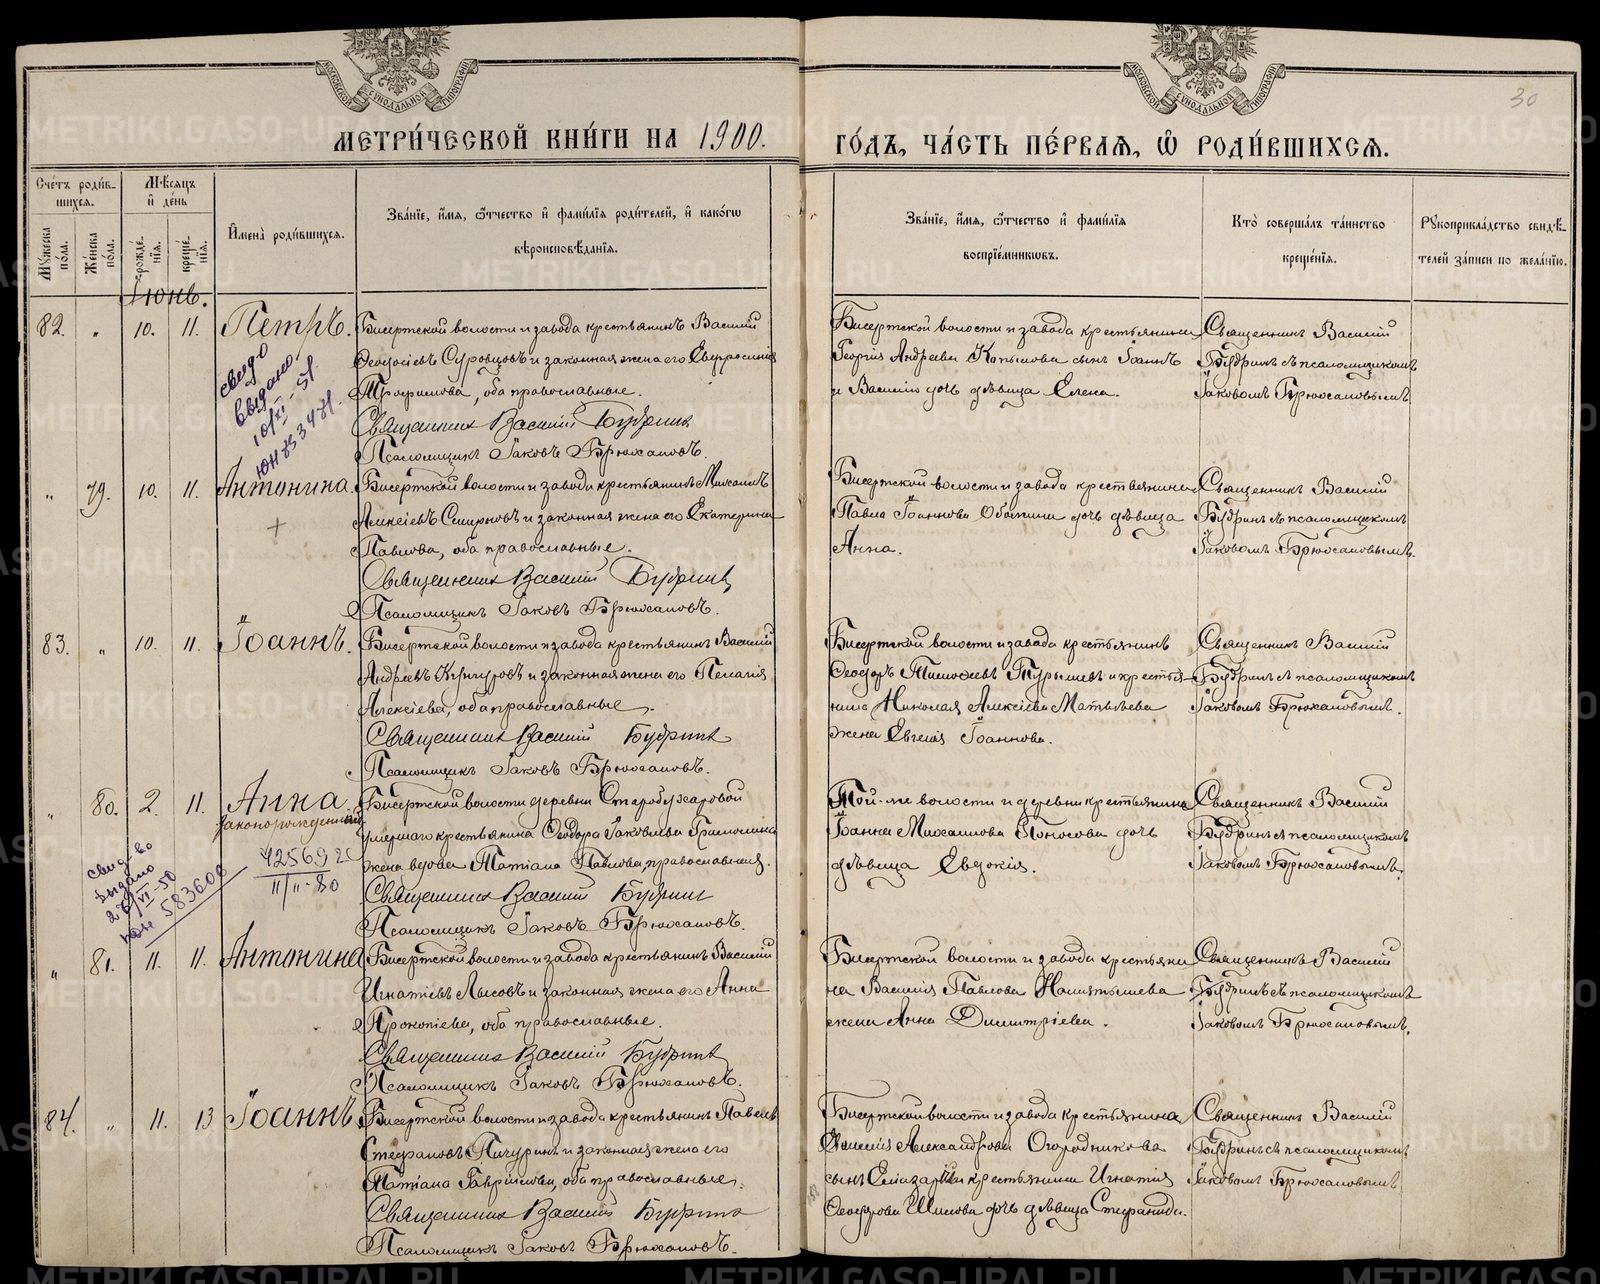 МОСКОВСКОЙ СѴНОДАЛЬНОЙ ТИПОГРАФІИ
МОСКОВСКОЙ СѴНОДАЛЬНОЙ ТИПОГРАФІИ
30
МЕТРИ́ЧЕСКОЙ КНИ́ГИ НА 1900. ГО́ДЪ, ЧА́СТЬ ПЕ́РВАѦ, Ѿ РОДИ́ВШИХСѦ.
Сче́тъ роди́в-
шихсѧ.
Мꙋ́жеска по́ла.
Же́нска по́ла.
Мѣ́сѧцъ и҆ де́нь
рожде́-нїѧ.
креще́-нїѧ.
И҆мена̀ роди́вшихсѧ.
Зва́нїе, и҆́мѧ, ѻ҆́тчество и҆ фами́лїѧ роди́телей, и҆ како́гѡ
вѣроисповѣ́данїѧ.
Зва́нїе, и҆́мѧ, ѻ҆́тчество и҆ фами́лїѧ
воспрїе́мникѡвъ.
Кто̀ соверша́лъ та́инство
креще́нїѧ.
Рꙋкоприкла́дство свидѣ́-
телей за́писи по жела́нїю.
Іюнь.
82. " 10. 11. Петръ.
Бисертской волости и завода крестьянинъ Василій
Ѳеодосіевъ Суровцовъ и законная жена его Евфросинія
Трофимова, оба православные.
Священникъ Василій Будринъ
Псаломщикъ Іаковъ Брюхановъ.
Бисертской волости и завода крестьянина
Георгія Андреева Копылова сынъ Іоаннъ
и Василія дочь дѣвица Елена.
Священникъ Василій
Будринъ съ псаломщикомъ
Іаковомъ Брюхановымъ.
свид-о
выдано
10/XI-51
ЮН 753471.
" 79. 10. 11. Антонина.
Бисертской волости и завода крестьянинъ Михаилъ
Алексіевъ Смирновъ и законная жена его Екатерина
Павлова, оба православные.
Священникъ Василій Будринъ
Псаломщикъ Іаковъ Брюхановъ.
Бисертской волости и завода крестьянина
Павла Іоаннова дочь дѣвица
Анна.
Священникъ Василій
Будринъ съ псаломщикомъ
Іаковомъ Брюхановымъ.
83. " 10. 11. Іоаннъ.
Бисертской волости и завода крестьянинъ Василій
Андреевъ Кунгуровъ и законная жена его Пелагія
Алексіева, оба православные.
Священникъ Василій Будринъ
Псаломщикъ Іаковъ Брюхановъ.
Бисертской волости и завода крестьянинъ
Ѳеодоръ Тимоѳеевъ Турышевъ и крестья-
нина Николая Алексіева Матвѣева
жена Евгенія Іоаннова.
Священникъ Василій
Будринъ съ псаломщикомъ
Іаковомъ Брюхановымъ.
" 80. 2. 11. Анна.
законорожденная
Бисертской волости деревни Старобухаровой
умершаго крестьянина Ѳеодора Іаковлева
жена вдова Татіана Павлова, православная.
Священникъ Василій Будринъ
Псаломщикъ Іаковъ Брюхановъ.
Той-же волости и деревни крестьянина
Іоанна Михаилова дочь
дѣвица Евдокія.
Священникъ Василій
Будринъ съ псаломщикомъ
Іаковомъ Брюхановымъ.
свид-во
выдано
583608
11/II-80
" 81. 11. 11. Антонина
Бисертской волости и завода крестьянинъ Василій
Игнатіевъ Лысовъ и законная жена его Анна
Прокопіева, оба православные.
Священникъ Василій Будринъ
Псаломщикъ Іаковъ Брюхановъ.
Бисертской волости и завода крестьяни
на Василія Павлова
жена Анна Димитріева.
Священникъ Василій
Будринъ съ псаломщикомъ
Іаковомъ Брюхановымъ.
84. " 11. 13 Іоаннъ
Бисертской волости и завода крестьянинъ Павелъ
Стефановъ Пичугинъ и законная жена его
Татіана Гавриилова, оба православные.
Священникъ Василій Будринъ
Псаломщикъ Іаковъ Брюхановъ.
Бисертской волости и завода крестьянина
Александрова Огородникова
сынъ и крестьянина Игнатія
Ѳеодорова Шилова дочь дѣвица Стефанида.
Священникъ Василій
Будринъ съ псаломщикомъ
Іаковомъ Брюхановымъ
METRIKI.GASO-URAL.RU